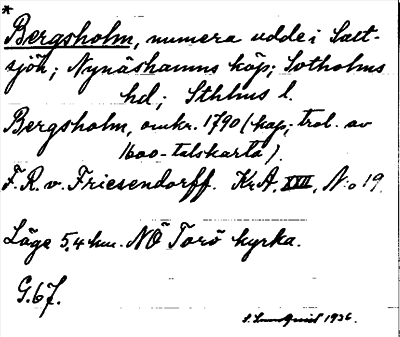 *
Bergsholm, numera udde i Salt-
sjön; Nynäshamns köp; Sotholms
hd; Sthlms l.
Bergsholm, omkr. 1790 (kop; trol. av
1600-talskarta).
F. R. v. Friesendorff. KrA, XXII, N:o 19.
Läge 5,4 km. NÖ Torö kyrka.
G.67.
S. Lundquist 1936.